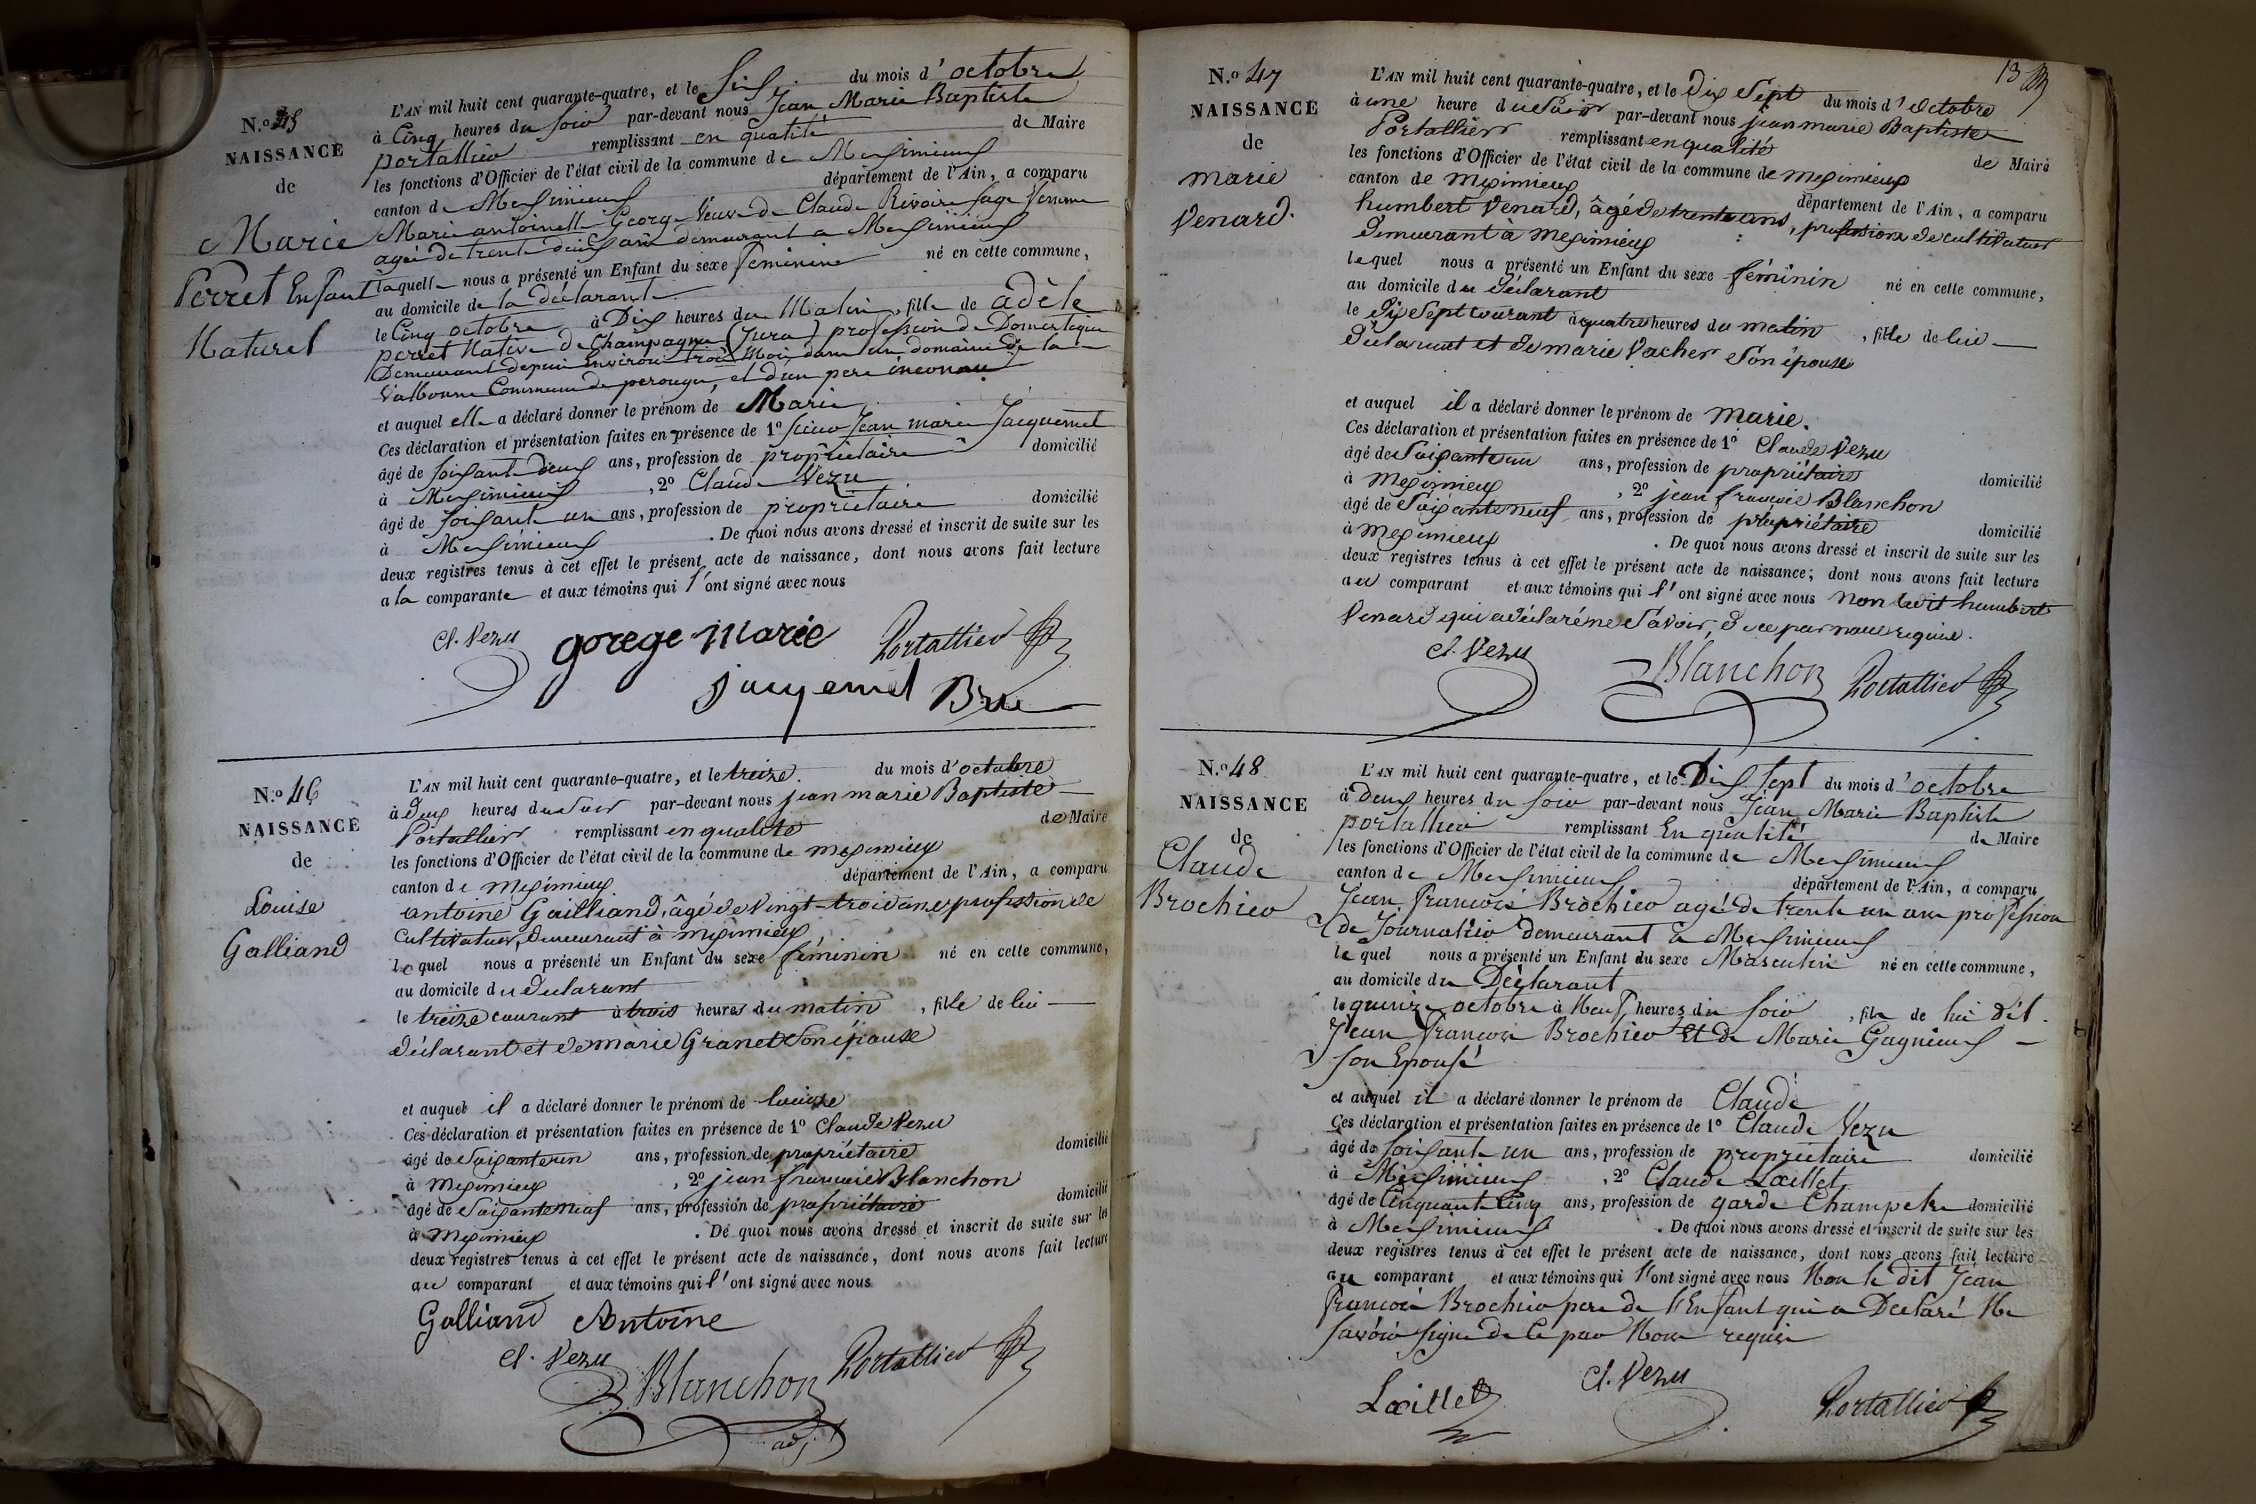 N.o 45
NAISSANCE
de
Marie
Perret Enfant
Naturel
L'AN mil huit cent quarante-quatre, et le Six du mois d'octobre
à Cinq heures du soir par-devant nous Jean Marie Baptiste
portallier remplissant en qualité de Maire
les fonctions d'Officier de l'état civil de la commune de Meximieux
canton de Meximieux département de l'Ain, a comparu
Marie antoinette George Veuve de Claude Rivoire sage femme
agée de trente deux ans demeurant a Meximieux
laquelle nous a présenté un Enfant du sexe feminine né en cette commune,
au domicile de la déclarante
le Cinq octobre à Dix heures du Matin, fille de adèle
perret Native de Champagne (Jura) profession de Domestique
Demeurant depuis Environ trois Mois dans un domaine de la
Valbonne Commune de perouge, et d'un pere inconnu
et auquel elle a déclaré donner le prénom de Marie
Ces déclaration et présentation faites en présence de 1o sieur Jean marie Jacquemet
âgé de soixante deux ans, profession de propriétaire domicilié
à Meximieux, 2o Claude Vezu
âgé de soixante un ans, profession de propriétaire domicilié
à Meximieux. De quoi nous avons dressé et inscrit de suite sur les
deux registres tenus à cet effet le présent acte de naissance, dont nous avons fait lecture
a la comparante et aux témoins qui l'ont signé avec nous
Cl. Vezu gorege marie Portallier
jacquemet
N.o 46
NAISSANCE
de
Louise
Galliand
L'AN mil huit cent quarante-quatre, et le treize. du mois d'octobre
à deux heures du Soir par-devant nous jean marie Baptiste
Portallier remplissant en qualité de Maire
les fonctions d'Officier de l'état civil de la commune de meximieux
canton de meximieux département de l'Ain, a comparu
antoine Gailliand, âgé de vingt-trois ans, profession de
Cultivateur, demeurant à meximieux
lequel nous a présenté un Enfant du sexe féminin né en cette commune,
au domicile du déclarant
le treize courant à trois heures du matin, fille de lui
déclarant et de marie Granet son épouse
et auquel il a déclaré donner le prénom de louise
Ces déclaration et présentation faites en présence de 1o Claude Vezu
âgé de Soixante un ans, profession de propriétaire domicilié
à meximieux, 2o jean francois Blanchon
âgé de Soixante neuf ans, profession de propriétaire domicilié
à meximieux. De quoi nous avons dressé et inscrit de suite sur les
deux registres tenus à cet effet le présent acte de naissance, dont nous avons fait lecture
au comparant et aux témoins qui l'ont signé avec nous
Galliand Antoine
Cl. Vezu Blanchon Portallier
adj.
13
N.o 47
NAISSANCE
de
marie
Venard.
L'AN mil huit cent quarante-quatre, et le Dix Sept du mois d'octobre
à une heure du Soir par-devant nous jean marie Baptiste
Portallier remplissant en qualité de Maire
les fonctions d'Officier de l'état civil de la commune de meximieux
canton de meximieux département de l'Ain, a comparu
humbert Venard, âgé de trente ans, profession de cultivateur
demeurant à meximieux
lequel nous a présenté un Enfant du sexe féminin né en cette commune,
au domicile du déclarant
le dix Sept courant à quatre heures du matin, fille de lui
déclarant et de marie Vacher son épouse
et auquel il a déclaré donner le prénom de marie.
Ces déclaration et présentation faites en présence de 1o Claude Vezu
âgé de Soixante un ans, profession de propriétaire domicilié
à meximieux, 2o jean francois Blanchon
âgé de Soixante neuf ans, profession de propriétaire domicilié
à meximieux. De quoi nous avons dressé et inscrit de suite sur les
deux registres tenus à cet effet le présent acte de naissance; dont nous avons fait lecture
au comparant et aux témoins qui l'ont signé avec nous non ledit humbert
Venard qui a déclaré ne Savoir, de ce par nous requis.
Cl. Vezu Blanchon Portallier
N.o 48
NAISSANCE
de
Claude
Brochier
L'AN mil huit cent quarante-quatre, et le Dix Sept du mois d'octobre
à deux heures du soir par-devant nous Jean Marie Baptiste
portallier remplissant En qualité de Maire
les fonctions d'Officier de l'état civil de la commune de Meximieux
canton de Meximieux département de l'Ain, a comparu
Jean francois Brochier agé de trente un ans profession
de Journalier demeurant a Meximieux
lequel nous a présenté un Enfant du sexe Masculin né en cette commune,
au domicile du Déclarant
le quinze octobre à Neuf heures du soir, fils de lui dit
Jean francois Brochier Et de Marie Gagnieux
son Epouse
et auquel il a déclaré donner le prénom de Claude
Ces déclaration et présentation faites en présence de 1o Claude Vezu
âgé de soixante un ans, profession de propriétaire domicilié
à Meximieux, 2o Claude Lœillet
âgé de Cinquante Cinq ans, profession de garde Champetre domicilié
à Meximieux. De quoi nous avons dressé et inscrit de suite sur les
deux registres tenus à cet effet le présent acte de naissance, dont nous avons fait lecture
au comparant et aux témoins qui l'ont signé avec nous Non le dit Jean
francois Brochier pere de l'Enfant qui a Declaré Ne
savoir signe de Ce par Nous requis
Lœillet Cl. Vezu Portallier